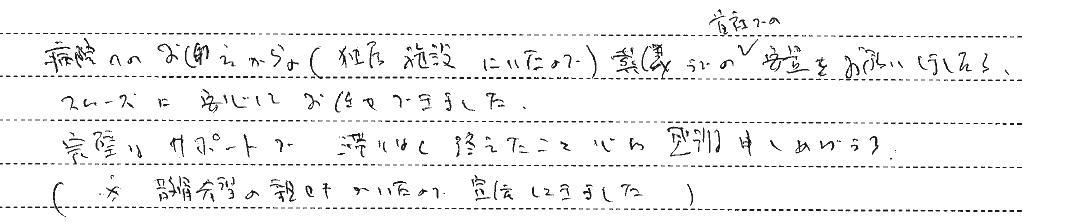 貴社での
病院へのお迎えから(独居 施設 にいたので)葬儀までの安置をお願いしました。
スムーズに安心してお任せできました。
完璧なサポートで滞りなく終えたこと心から感謝申しあげます。
(※ 散骨希望の親せきがいたので 宣伝しときました )